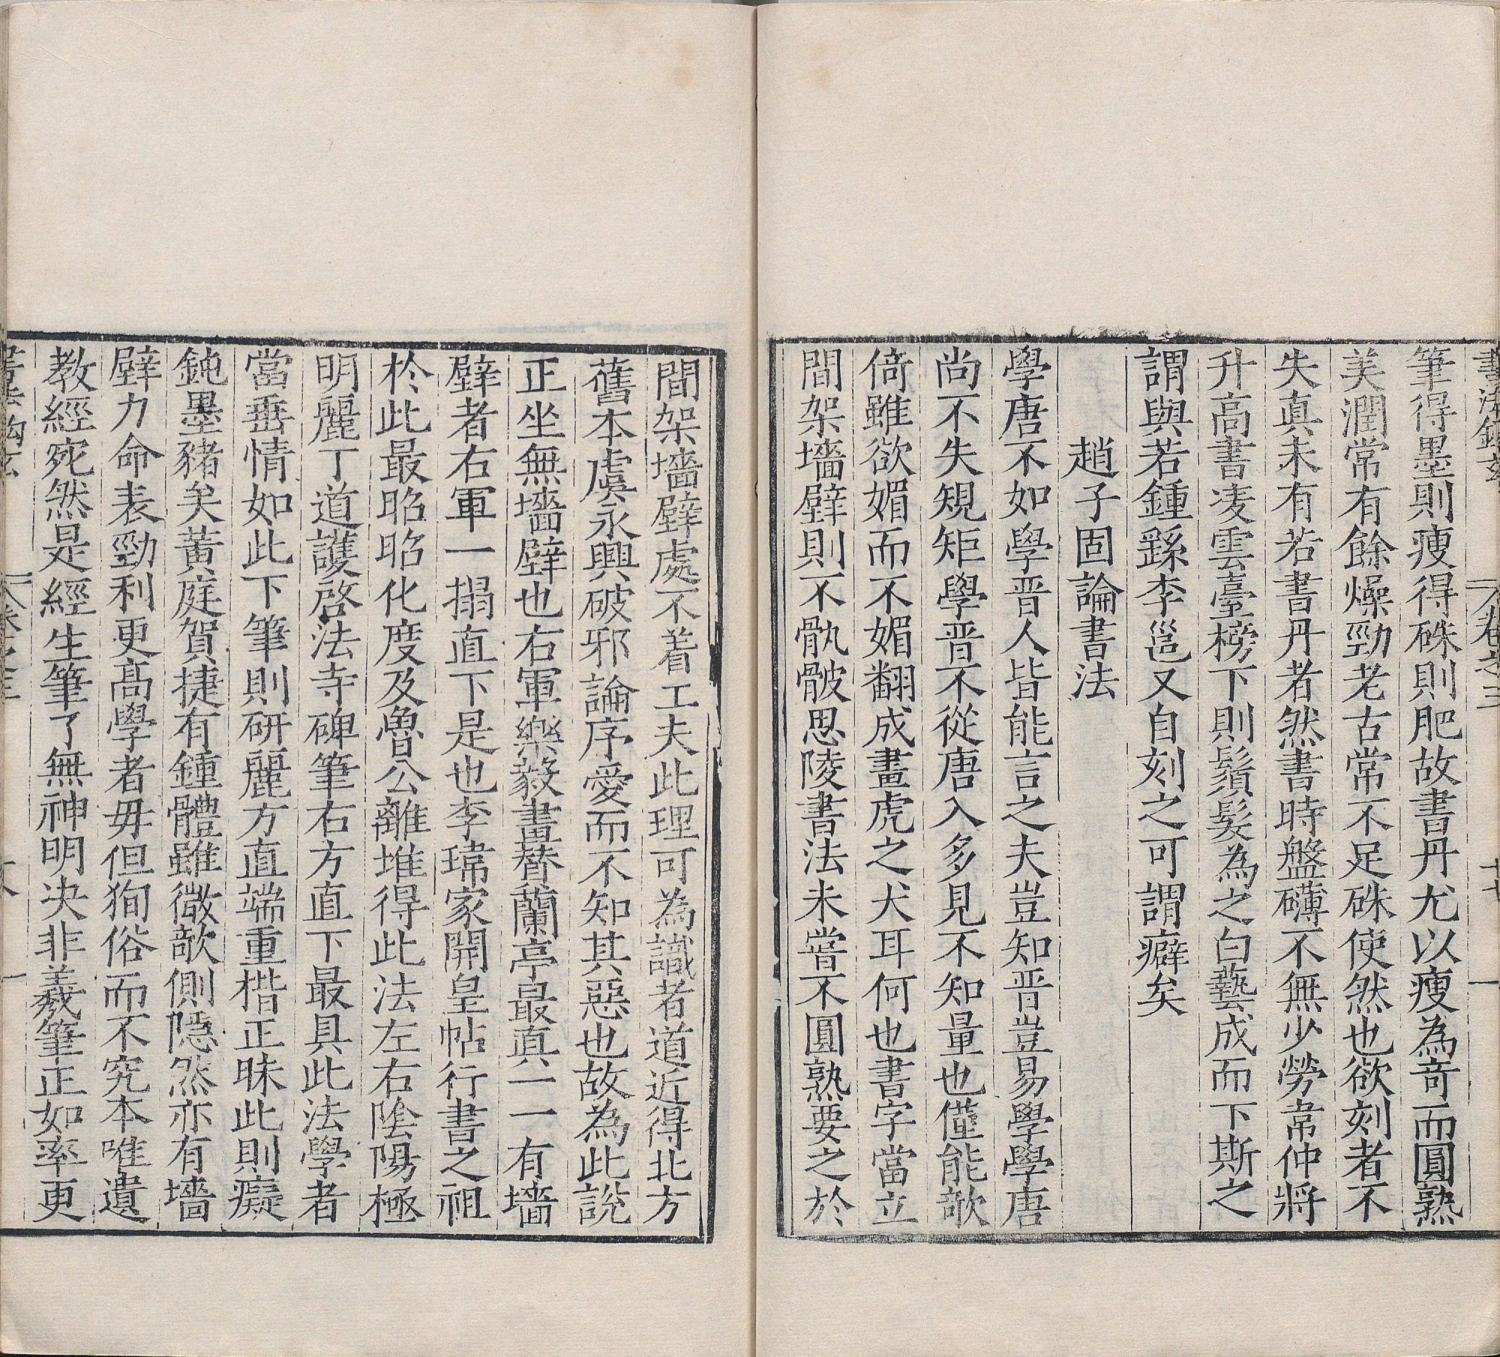 筆得墨則瘦得硃則肥故書丹尤以瘦為奇而圓熟
美潤常有餘燥勁老古常不足硃使然也欲刻者不
失真未有若書丹者然書時盤礴不無少勞韋仲將
升高書凌雲臺榜下則鬚髮為之白藝成而下斯之
謂與若鍾繇李邕又自刻之可謂癖矣
趙子固論書法
學唐不如學晋人皆能言之夫豈知晋豈易學學唐
尚不失䂓矩學晋不從唐入多見不知量也僅能欹
倚雖欲媚而不媚翻成畫虎之犬耳何也書字當立
間架墻壁則不骩骳思陵書法未嘗不圓熟要之於
間架墻壁處不着工夫此理可為識者道近得北方
舊本虞永興破邪論序愛而不知其惡也故為此說
正坐無墻壁也右軍樂毅畫賛蘭亭最真一一有墻
壁者右軍一搨直下是也李瑋家開皇帖行書之祖
於此最昭昭化度及魯公離堆得此法左右陰陽極
明麗丁道護啓法寺碑筆右方直下最具此法學者
當垂情如此下筆則研麗方直端重楷正昧此則癡
鈍墨豬矣黃庭賀捷有鍾體雖微欹側隱然亦有墻
壁力命表勁利更髙學者毋但狥俗而不究本唯遺
教經宛然是經生筆了無神明决非羲筆正如率更